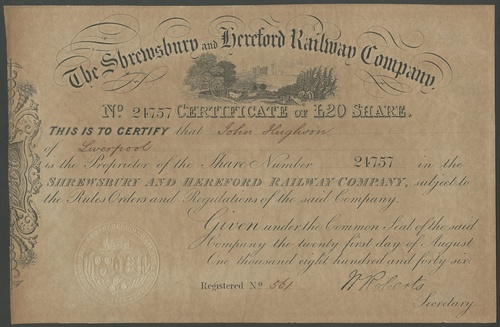 The Shrewsbury and Hereford Railway Company.
No 24757 CERTIFICATE OF £20 SHARE.
THIS IS TO CERTIFY that John Hughson
of Liverpool
is the Proprietor of the Share Number 24757 in the
SHREWSBURY AND HEREFORD RAILWAY COMPANY, subject to
the Rules Orders and Regulations of the said Company.
Given under the Common Seal of the said
Company the twenty first day of August
One thousand eight hundred and forty six.
Registered No 561 W Roberts
Secretary.